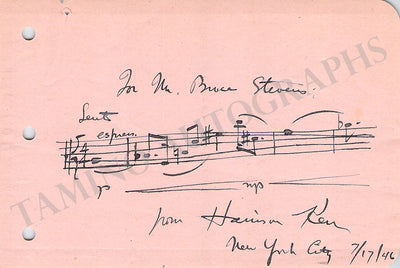 For Mr. Bruce Stevens.
Lento
espress.
4
p mp
from Harrison Kerr
New York City 7/17/46
TAMINO AUTOGRAPHS